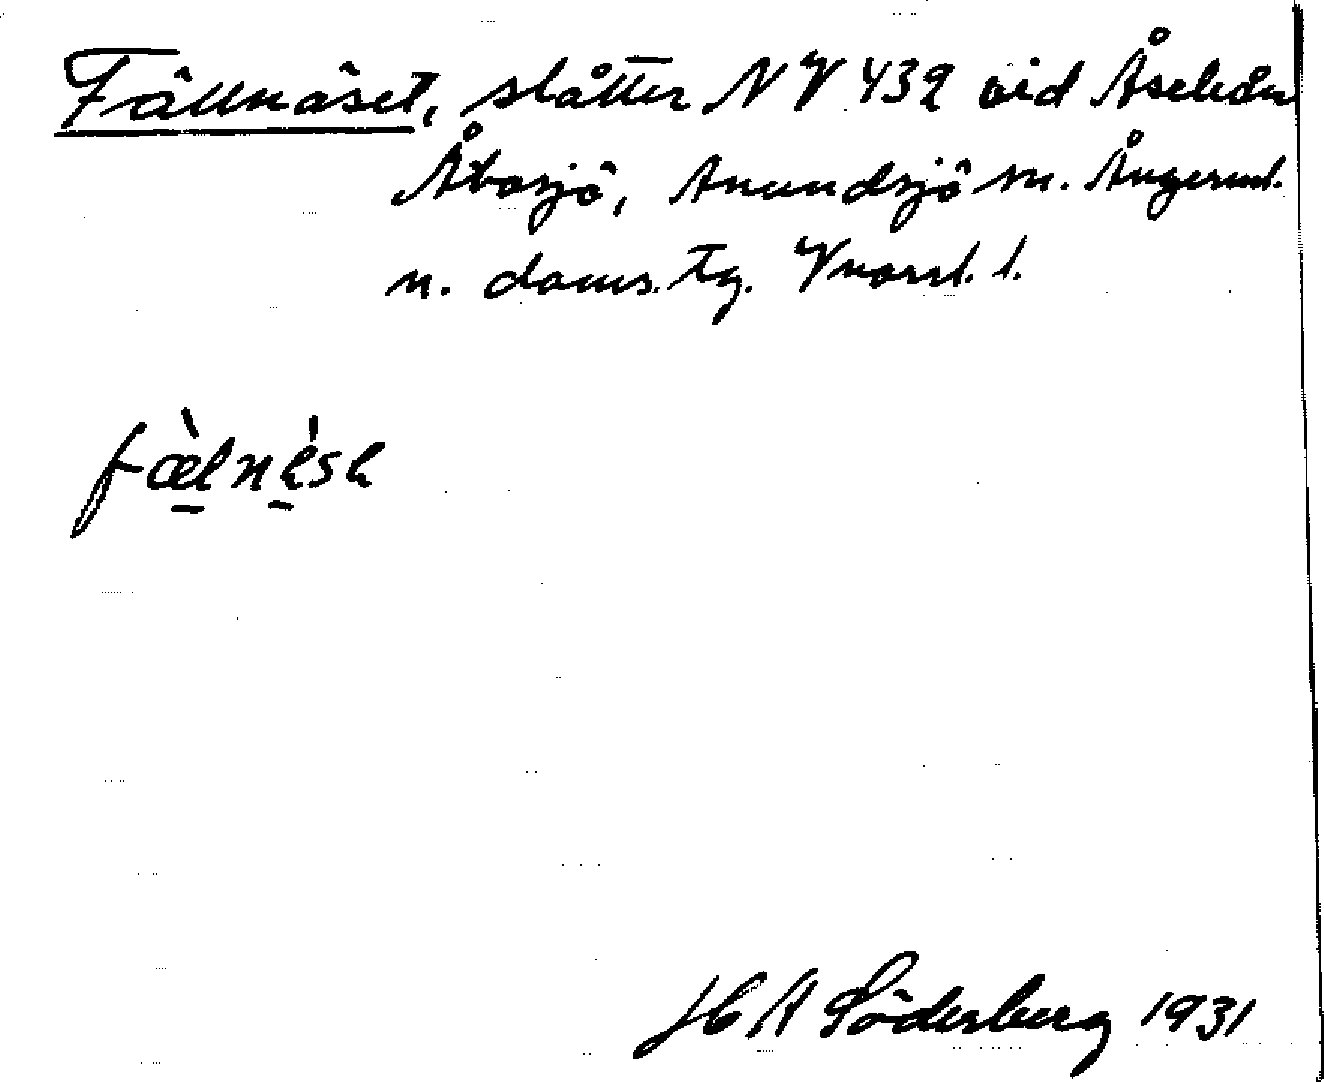 Fällnäset, slåtter NV 432 vid Åseleån
Åbosjö, Anundsjö sn. Ångerml.
n. doms. tg. Vnorrl. l.
fæ̀lnèse
H A Söderberg 1931